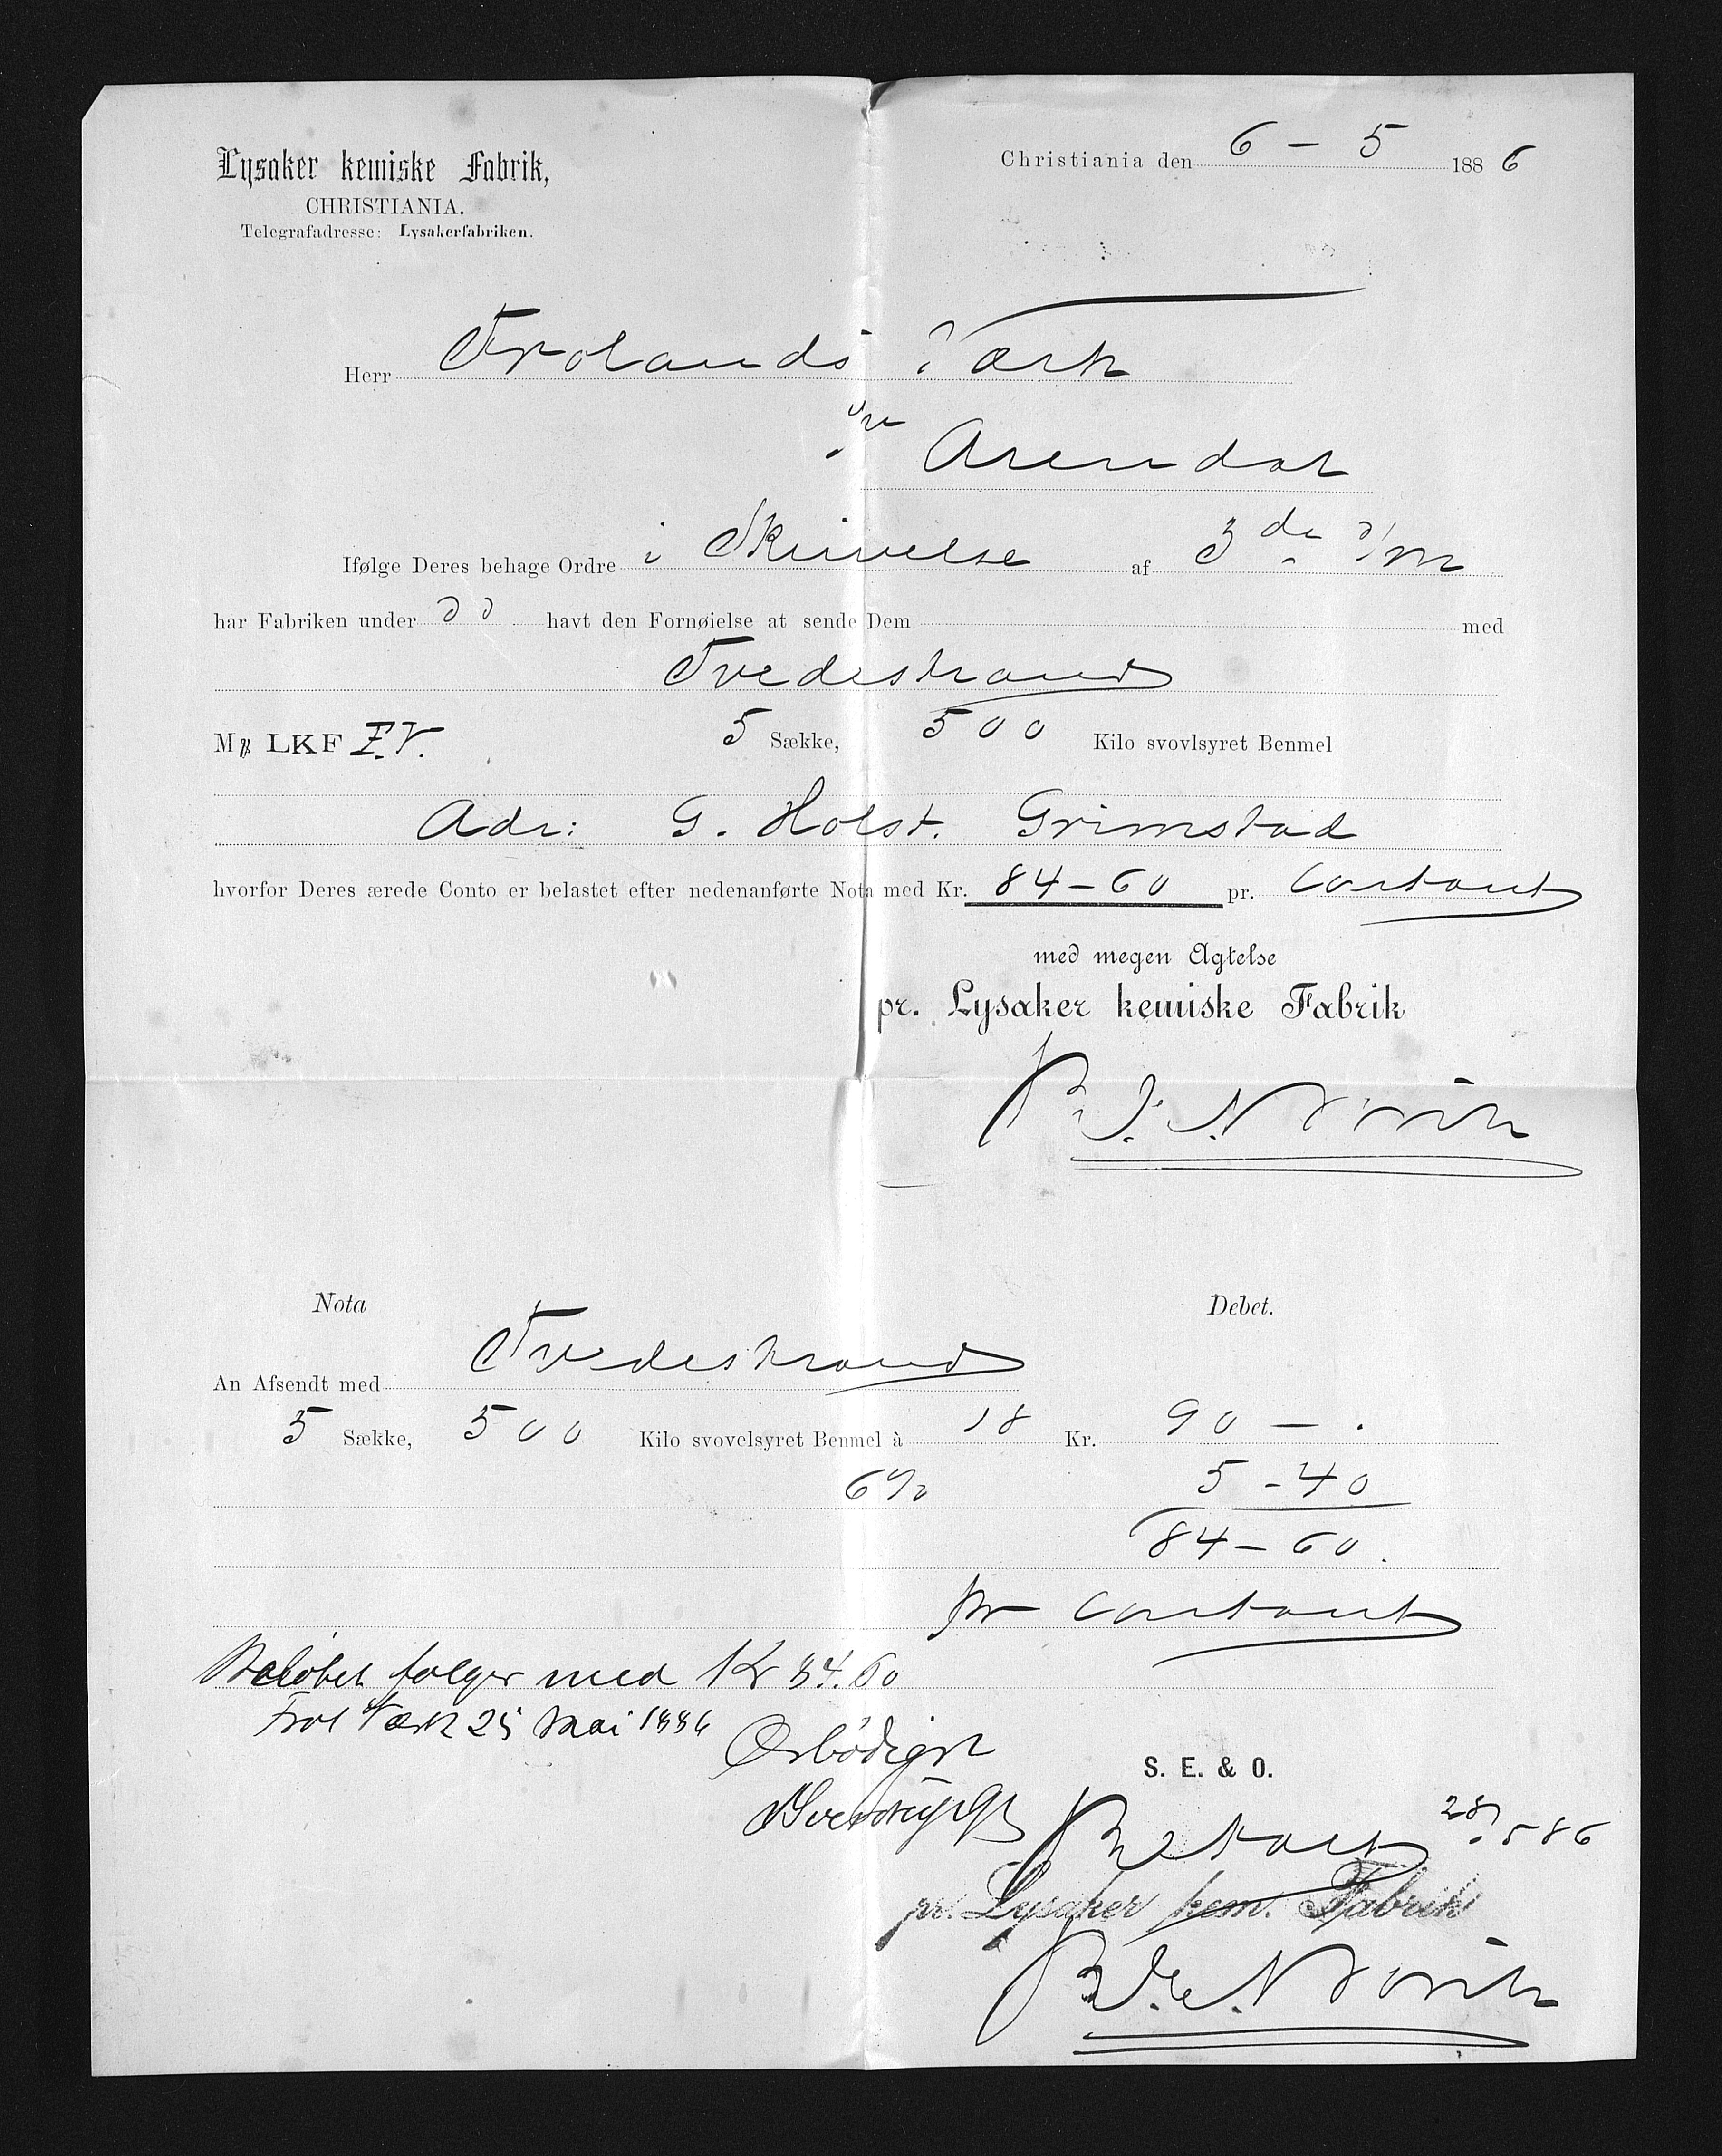 Lysaker kemiske Fabrik,
CHRISTIANIA.
Telegrafadresse: Lysakerfabriken.
Christiania den 6 – 5 1886
Herr Frolands Værk
pr Arendal
Ifølge Deres behage Ordre i Skrivelse af 3de d/m
har Fabriken under D D havt den Fornøielse at sende Dem med
Tvedestrand
Mrk LKF F.V. 5 Sække, 500 Kilo svovlsyret Benmel
Adr: G. Holst. Grimstad
hvorfor Deres ærede Conto er belastet efter nedenanførte Nota med Kr. 84–60 pr. Contant
med megen Agtelse
pr. Lysaker kemiske Fabrik
Nota Debet.
An Afsendt med Tvedestrand
5 Sække, 500 Kilo svovelsyret Benmel à 18 Kr. 90 – .
6% 5 – 40
84 – 60.
pr Contant
Beløbet følger med Kr 84.60
Frol Værk 25 Mai 1886
Ærbødigst
S. E. & O.
Betalt 28/5 86
pr. Lysaker kem. Fabrik